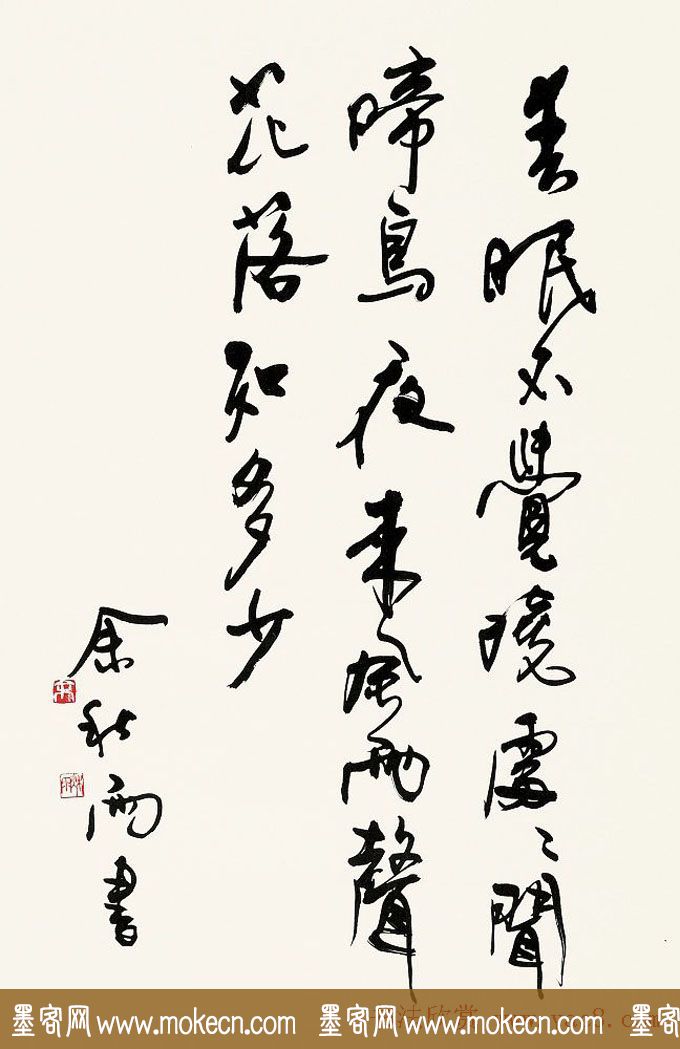 春眠不覺曉處〻聞
啼鳥夜來風雨聲
花落知多少
余秋雨書
墨客网 www.mokecn.com 墨客网 www.mokecn.com